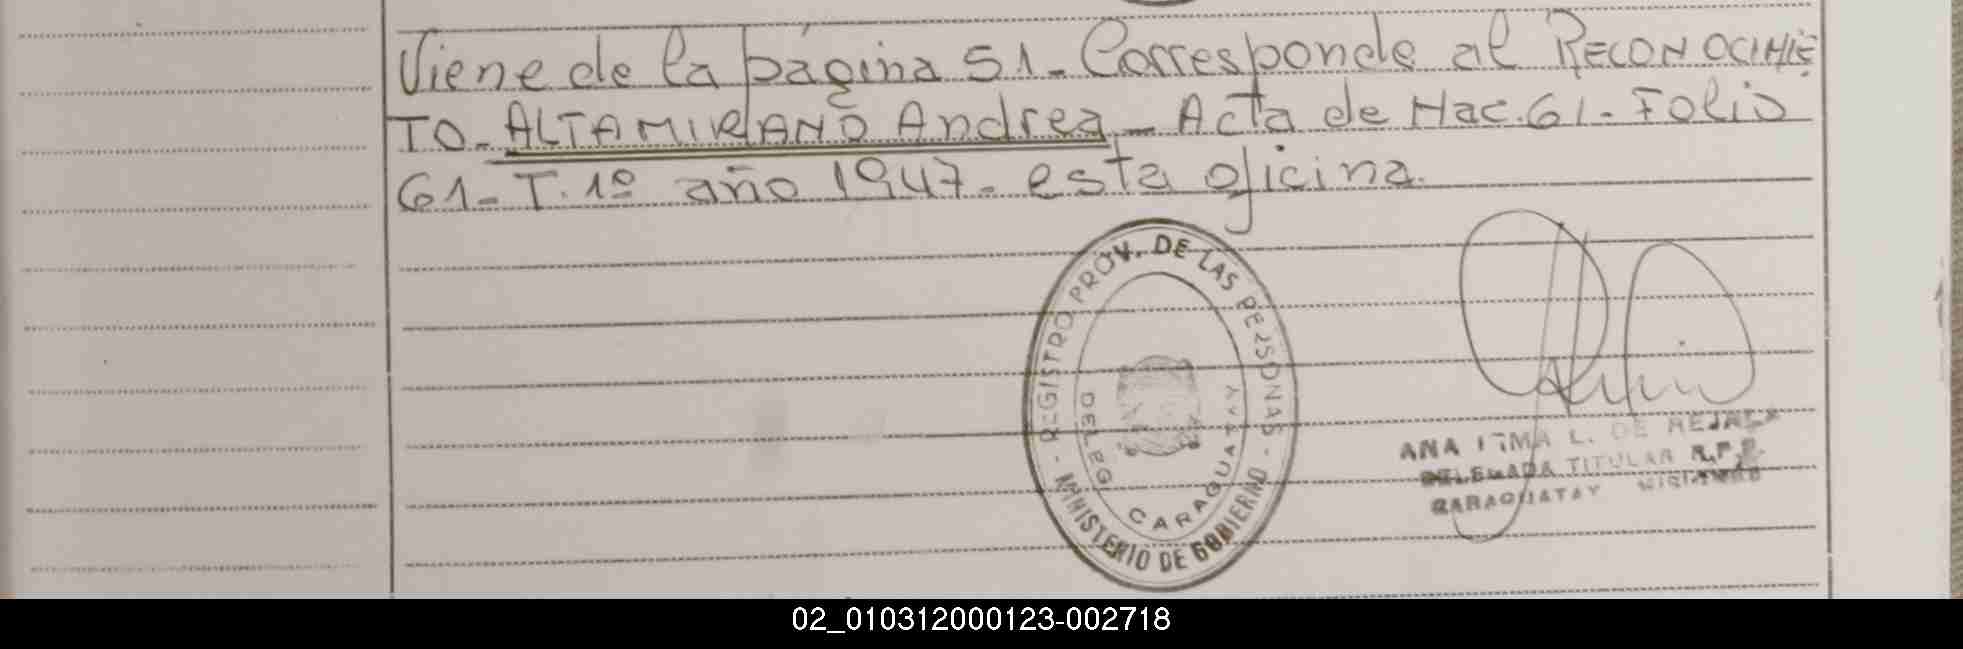 Viene de la página 51_ Corresponde al RECONOCIMIE
TO_ ALTAMIRANO Andrea _ Acta de Nac. 61 - Folio
61 - T. 1º año 1947 - esta oficina.
- REGISTRO PROV. DE LAS PERSONAS -
MINISTERIO DE GOBIERNO
DELEG
CARAGUATAY
ANA IRMA L. DE
DELEGADA TITULAR R.P.
CARAGUATAY MISIONES
02_010312000123-002718